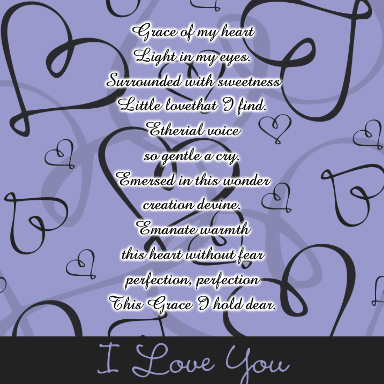 Grace of my heart
Light in my eyes.
Surrounded with sweetness
Little lovethat I find.
Etherial voice
so gentle a cry.
Emersed in this wonder
creation devine.
Emanate warmth
this heart without fear
perfection, perfection
This Grace I hold dear.
I Love You